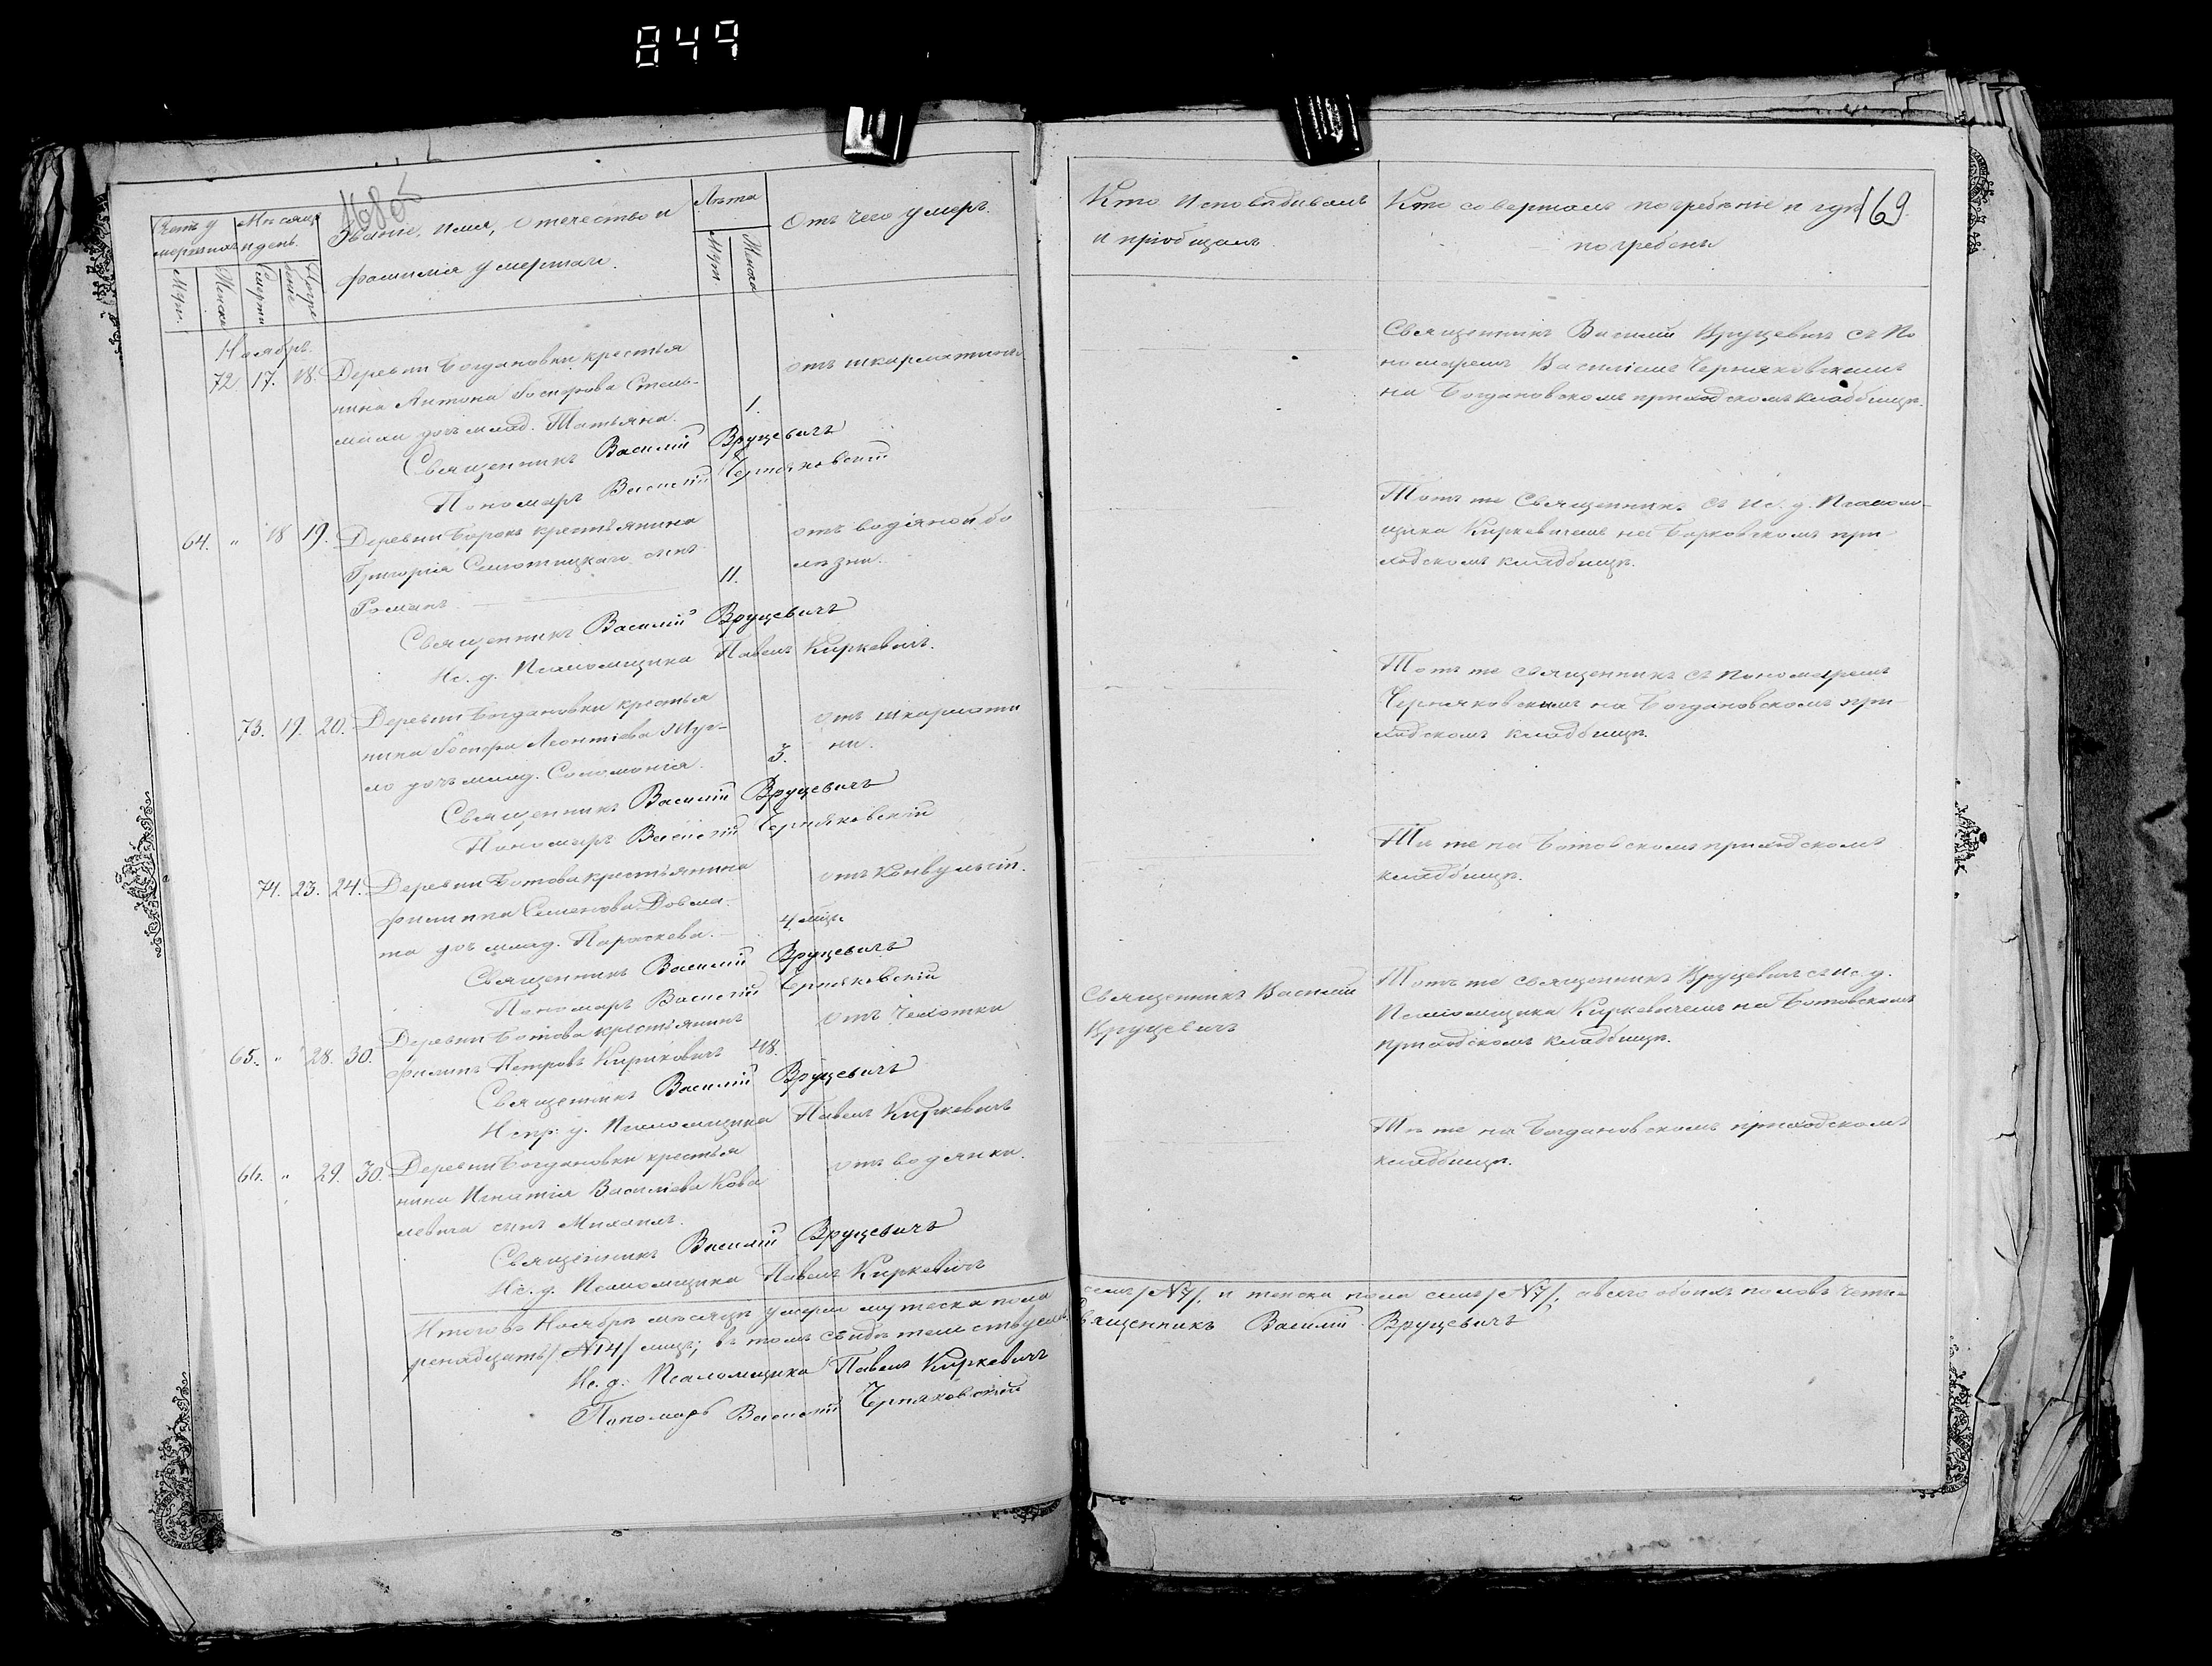 849
1686
169.
Счетъ у
мершихъ
Мѣсяцъ
и день.
Званіе, имя, отечество и
фамилія умершаго.
Лѣта
Отъ чего умеръ.
Муж.
Женск
Смерти
Погре
бенія
Муж.
Женска
Ноябрь.
72 17. 18. Деревни Богдановки крестья
нина Антона Іосифова Стель-
маха дочь млад. Татьяна.
1.
отъ шкарлатины
Священникъ Василій Вруцевичъ
Пономарь Василій Черняковскій
64. „ 18 19. Деревни Борокъ крестьянина
Григорія сынъ
Романъ.
11.
отъ водяной бо
лѣзни.
Священникъ Василій Вруцевичъ
Ис. д. Псаломщика Павелъ Киркевичъ.
73. 19. 20. Деревни Богдановки крестья
нина Іосифа Леонтіева
дочь млад. Соломонія.
3.
отъ шкарлати
ны.
Священникъ Василій Вруцевичъ
Пономарь Василій Черняковскій
74. 23. 24. Деревни Ботова крестьянина
Филиппа Семенова Довма-
та дочь млад. Параскева.
4 мѣс.
отъ конвульсій.
Священникъ Василій Вруцевичъ
Пономарь Василій Черняковскій
65. „ 28. 30. Деревни Ботова крестьянинъ
Филипъ Петровъ Кириковичъ 48.
отъ чахотки
Священникъ Василій Вруцевичъ
Испр. д. Псаломщика Павелъ Киркевичъ
66. „ 29. 30. Деревни Богдановки крестья
нина Игнатія Васильева Кова
левича сынъ Михаилъ.
отъ водянки.
Священникъ Василій Вруцевичъ
Ис. д. Псаломщика Павелъ Киркевичъ
Итого въ Ноябрѣ мѣсяцѣ умерли мужеска пола
ренадцать /№14/ лицъ; въ томъ свидѣтельствуемъ
Ис. д. Псаломщика Павелъ Киркевичъ
Пономарь Василій Черняковскій
Кто исповѣдывалъ
и пріобщалъ
Кто совершалъ погребеніе и гдѣ
погребены
Священникъ Василій Вруцевичъ съ По
номаремъ Василіемъ Черняковскимъ
на Богдановскомъ приходскомъ кладбищѣ.
Тотъ же Священникъ съ Ис. д. Псалом-
щика Киркевичемъ на Борковскомъ при
ходскомъ кладбищѣ.
Тотъ же священникъ съ пономаремъ
Черняковскимъ на Богдановскомъ при
ходскомъ кладбищѣ.
Тѣ же на Ботовскомъ приходскомъ
кладбищѣ.
Священникъ Василій
Вруцевичъ
Тотъ же священникъ Вруцевичъ съ Ис. д.
Псаломщика Киркевичемъ на Ботовскомъ
приходскомъ кладбищѣ.
Тѣ же на Богдановскомъ приходскомъ
кладбищѣ.
семь /№7/, и женска пола семь /№7/, а всего обоихъ половъ четы-
Священникъ Василій Вруцевичъ